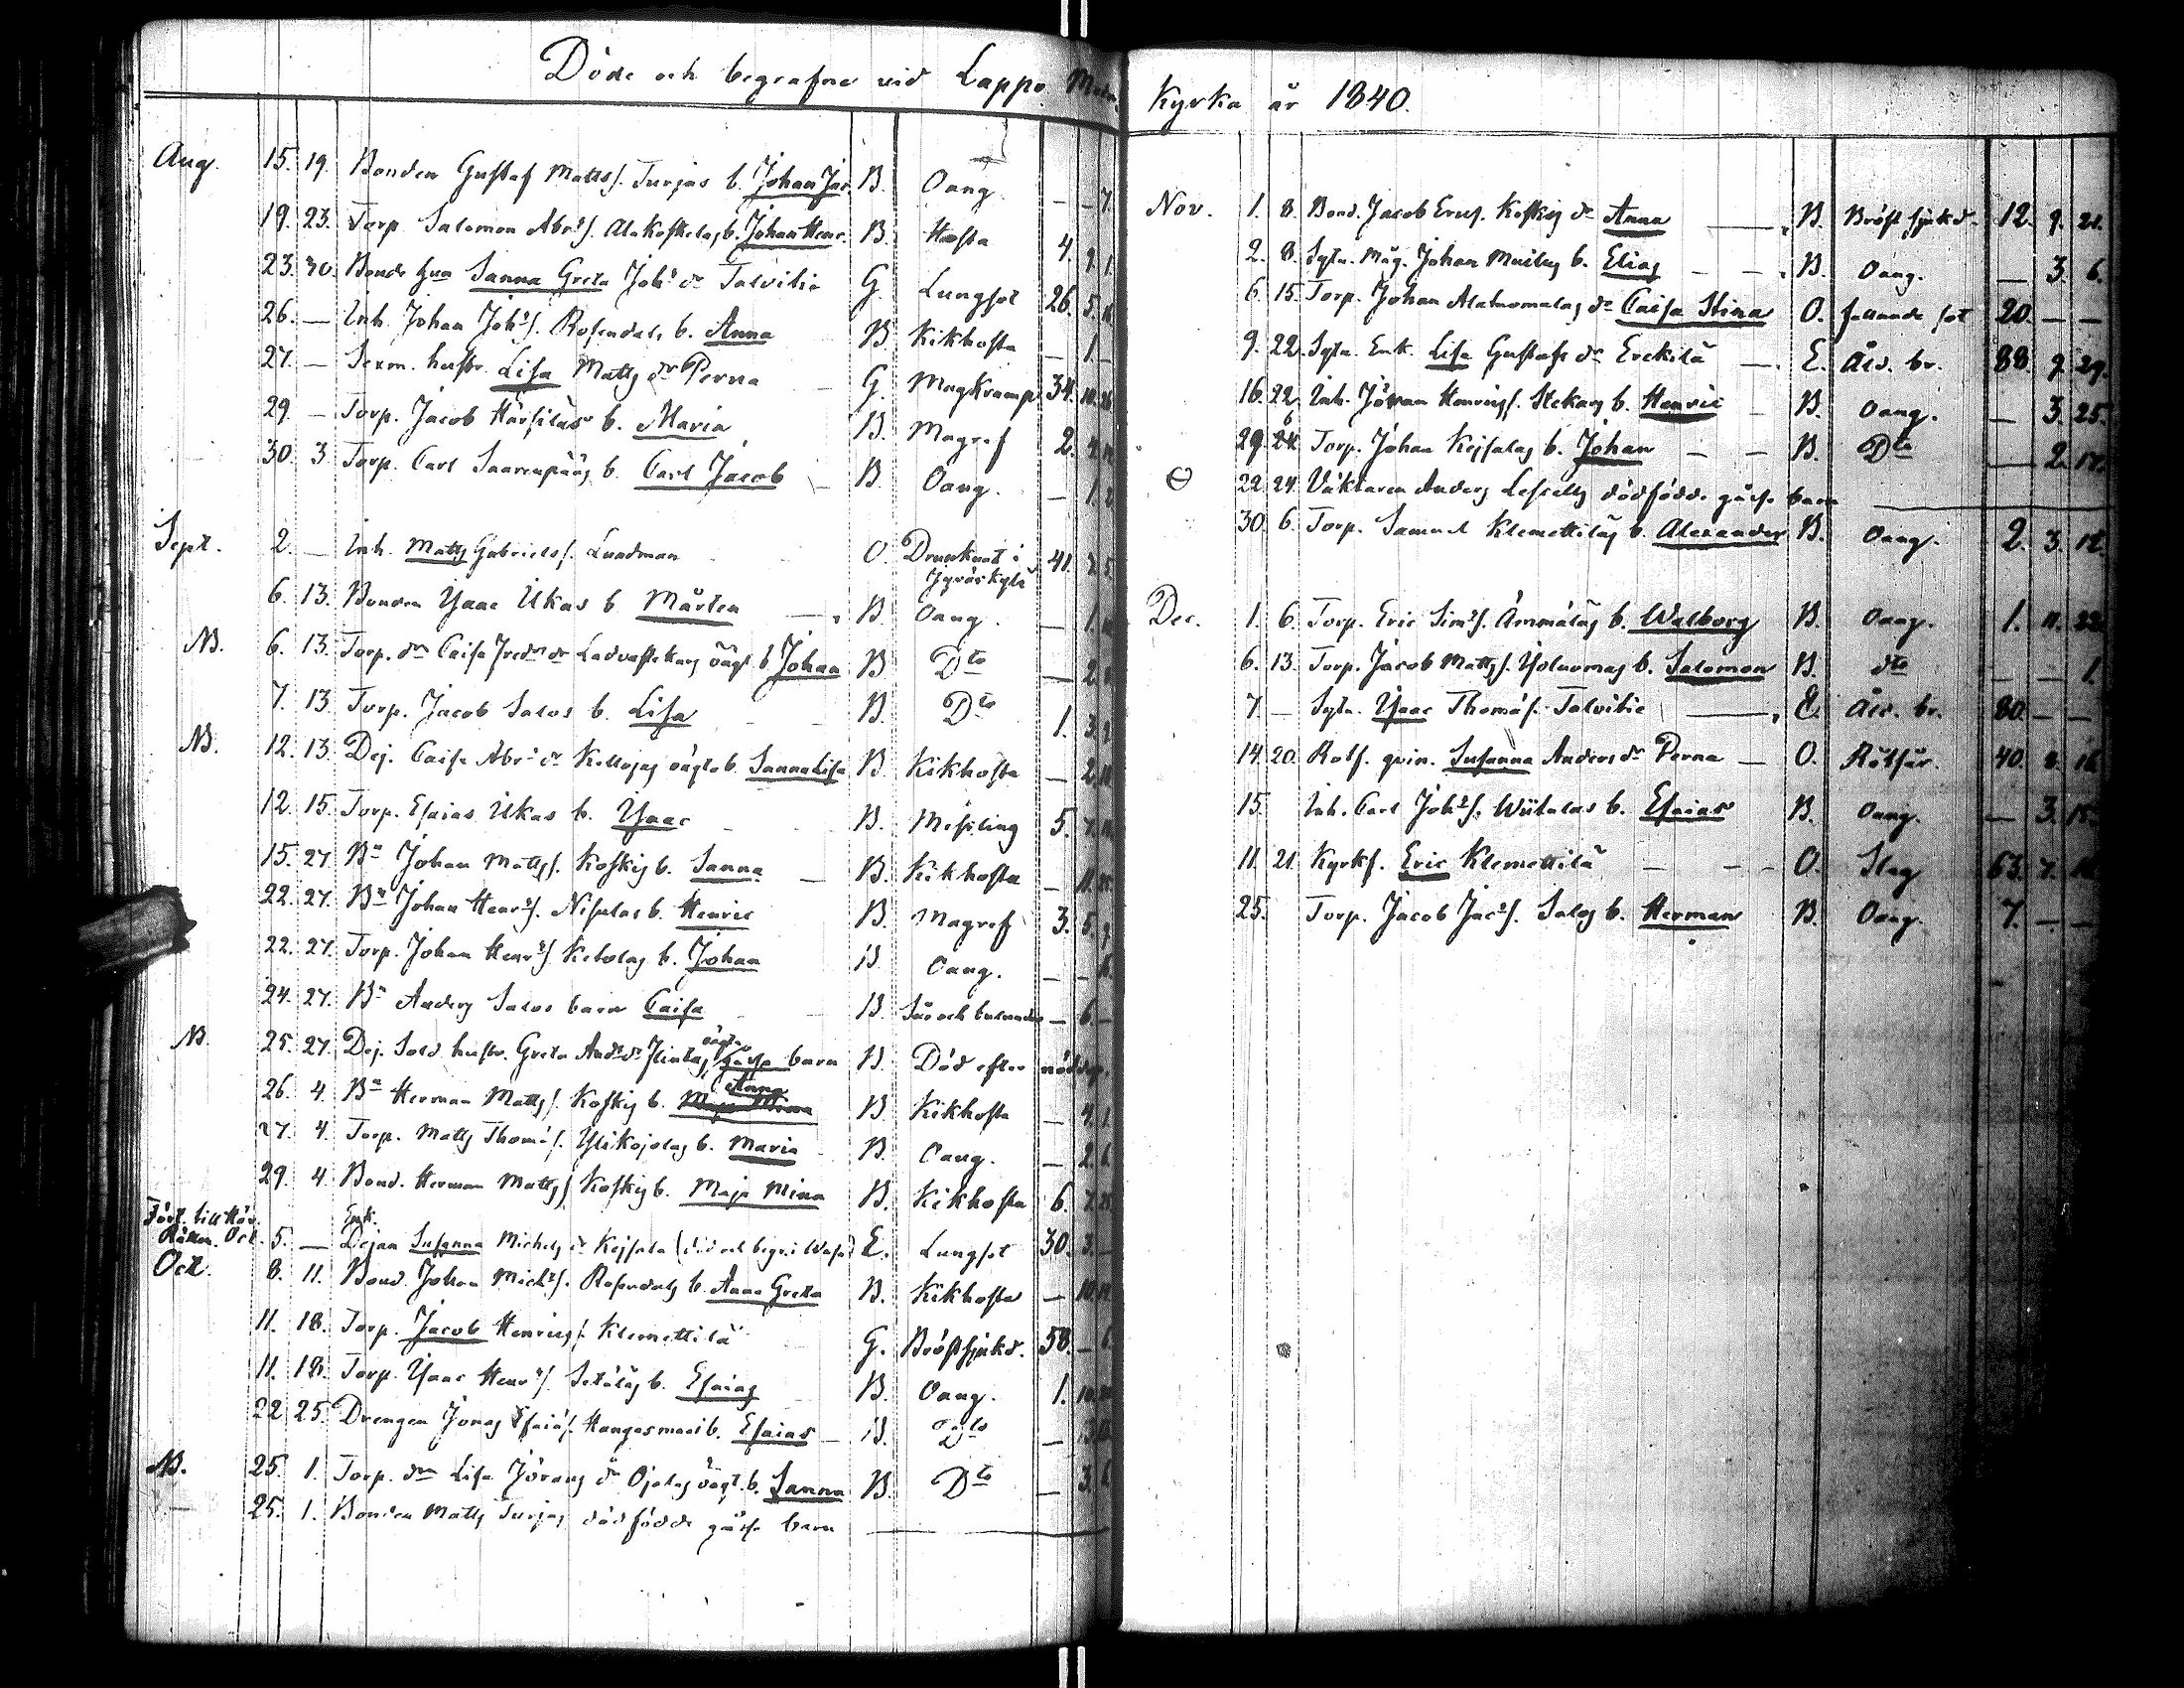 Döde och begrafne vid Lappo Moder
Aug. 15. 19. Bonden Gustaf Matts s. Turjas b. Johan Jac. B. Oang. — — 7.
19. 23. Torp. Salomon Abr:s s. Alakoskelas b. Johan Henr. B. Hosta 4. 9. 1.
23. 30. Bonde hu Sanna Greta Joh:s dr Talvitie G. Lungsot 26. 5.
26. — Inh. Johan Joh:s s. Rosendals b. Anna B. Kikhosta — 1. —
27. — Sexm. hustr. Lisa Matts dr Perna — G. Magkramp 34. 10. 26
29. — Torp. Jacob Härsiläs b. Maria B. Magref 2. 4.
30. 3 Torp. Carl Saarenpääs b. Carl Jacob — B. Oang. — 1.
Sept. 2. — Inh. Matts Gabriels s. Lundman O. Drunknat i 41. 7. 5.
Jyväskylä
6. 13. Bonden Isaac Ukas b. Mårten — B. Oang. — 1.
NB. 6. 13. Torp. dr Caisa Fred:s dr Ladvastekars oägt. b. Johan B. Dto — 2.
7. 13. Torp. Jacob Salos b. Lisa B. Dto 1. 3.
NB. 12. 13. Dej. Caisa Abr:s dr Kellojas oägta b. Sanna Lisa B. Kikhosta — 2.
12. 15. Torp. Esaias Ukas b. Isaac B. Messling 5. 7.
15. 27. Bn Johan Matts s. Koskis b. Sanna — B. Kikhosta — 11.
22. 27. Bn Johan Henr:s s. Nisulas b. Henric B. Magref 3. 5. 9.
22. 27. Torp. Johan Henr:s s. Ketolas b. Johan B. Oang. — —
24. 27. Bn Anders Salos barn Caisa B. Sår och bulnader — 6. —
oägta
NB. 25. 27. Dej. Sold. hustr. Greta And:s dr gosse barn B. Död efter nöddop.
Anna
26. 4. Bn Herman Matts s. Koskis b. B. Kikhosta — 4. 1.
27. 4. Torp. Matts Thom:s s. Ylikojolas b. Maria B. Oang. — 2. 6.
29. 4. Bond. Herman Matts s. Koskis b. Maja Mina B. Kikhosta 6. 7.
Enk.
Oct. 5. — Dejan Susanna Michels dr Kejsala (död och begr. i Wasa) E. Lungsot 30. 3. —
Oct. 8. 11. Bond. Johan Mich:s s. Rosendals b. Anna Greta B. Kikhosta — 10.
11. 18. Torp. Jacob Henrics s. Klemettilä G. Bröstsjukd. 58. —
11. 18. Torp. Isaac Henr:s s. Setäläs b. Esaias B. Oang. 1. 10.
22 25. Drengen Jonas Esaias s. Kangasmaas b. Esaias — B. Dto —
NB. 25. 1. Torp. dr Lisa Jörans dr Ojalas oägt. b. Sanna B. Dto — 3.
— 25. 1. Bonden Matts Turjas dödfödde gosse barn
Kyrka år 1840.
Nov. 1. 8. Bond. Jacob Erics s. Koskis dr Anna — B. Bröst sjukd. 12. 9. 21.
2. 8. Sytn. Måg. Johan Mailas b. Elias — — B. Oang. — 3. 6.
6. 15. Torp. Johan Alatuomalas dr Caisa Stina O. fallande sot 20. — —
9. 22. Sytn. Enk. Lisa Gustafs dr Erckilä — E. Åld. br. 88. 9. 29.
16. 22. Inh. Jöran Henrics s. Stekars b. Henric — B. Oang. — 3. 25.
6
29. 24 Torp. Johan Kejsalas b. Johan — — B. Dto — 2. 17.
22 24 Väktaren Anders Lessells dödfödde gosse barn
30. 6. Torp. Samuel Klemettiläs b. Alexander B. Oang. 2. 3. 12.
Dec. 1. 6. Torp. Eric Sim:s s. Ämmäläs b. Walborg B. Oang. 1. 11. 22.
6. 13. Torp. Jacob Matts s. Yliluomas b. Salomon B. dto — — 1.
7. — Sytn. Isaac Thomæ s. Talvitie — E. Åld. br. 80. — —
14. 20. Rotf. qvin. Susanna Anders dr Perna — O. Rötfeber. 40. 8. 16
15. Inh. Carl Joh:s s. Wiitalas b. Esaias B. Oang. — 3. 15.
11. 21. Kyrkf. Eric Klemettilä — — O. Slag 63. 7.
25. Torp. Jacob Jac:s s. Salos b. Herman B. Oang. 7. — —